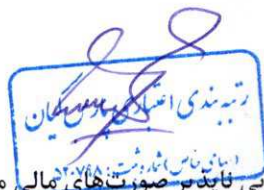 رتبه بندی اعتباری پارس کیان
(سهامی خاص) شماره ثبت: ۵۲۰۷۴۸
ناپذیر صورت‌های مالی